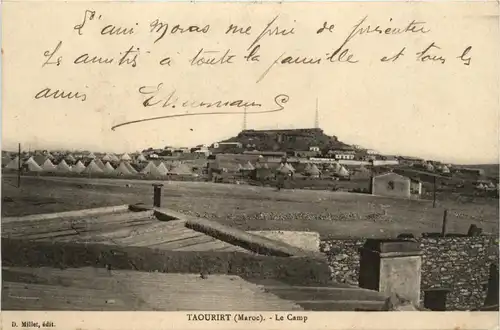 L'ami Moras me prie de présenter
les amitiés à toute la famille et tous les
amis
TAOURIRT (Maroc). - Le Camp
D. Millet, édit.